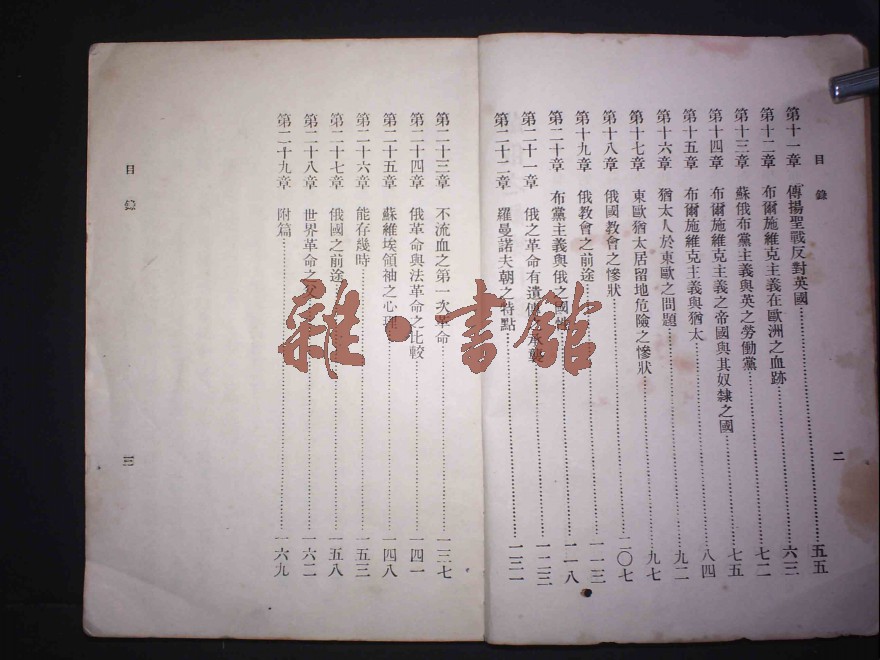 目錄
第十一章 傳揚聖戰反對英國……五五
第十二章 布爾施維克主義在歐洲之血跡……六三
第十三章 蘇俄布黨主義與英之勞働黨……七二
第十四章 布爾施維克主義之帝國與其奴隸之國……七五
第十五章 布爾施維克主義與猶太……八四
第十六章 猶太人於東歐之問題……九二
第十七章 東歐猶太居留地危險之慘狀……九七
第十八章 俄國教會之慘狀……一〇七
第十九章 俄教會之前途……一一三
第二十章 布黨主義與俄之國……一一八
第二十一章 俄之革命有遺傳之承襲……一二三
第二十二章 羅曼諾夫朝之特點……一三一
二
目錄
第二十三章 不流血之第一次革命……一三七
第二十四章 俄革命與法革命之比較……一四一
第二十五章 蘇維埃領袖之心理……一四八
第二十六章 能存幾時……一五三
第二十七章 俄國之前途……一五八
第二十八章 世界革命之……一六二
第二十九章 附篇……一六九
三
雜·書館